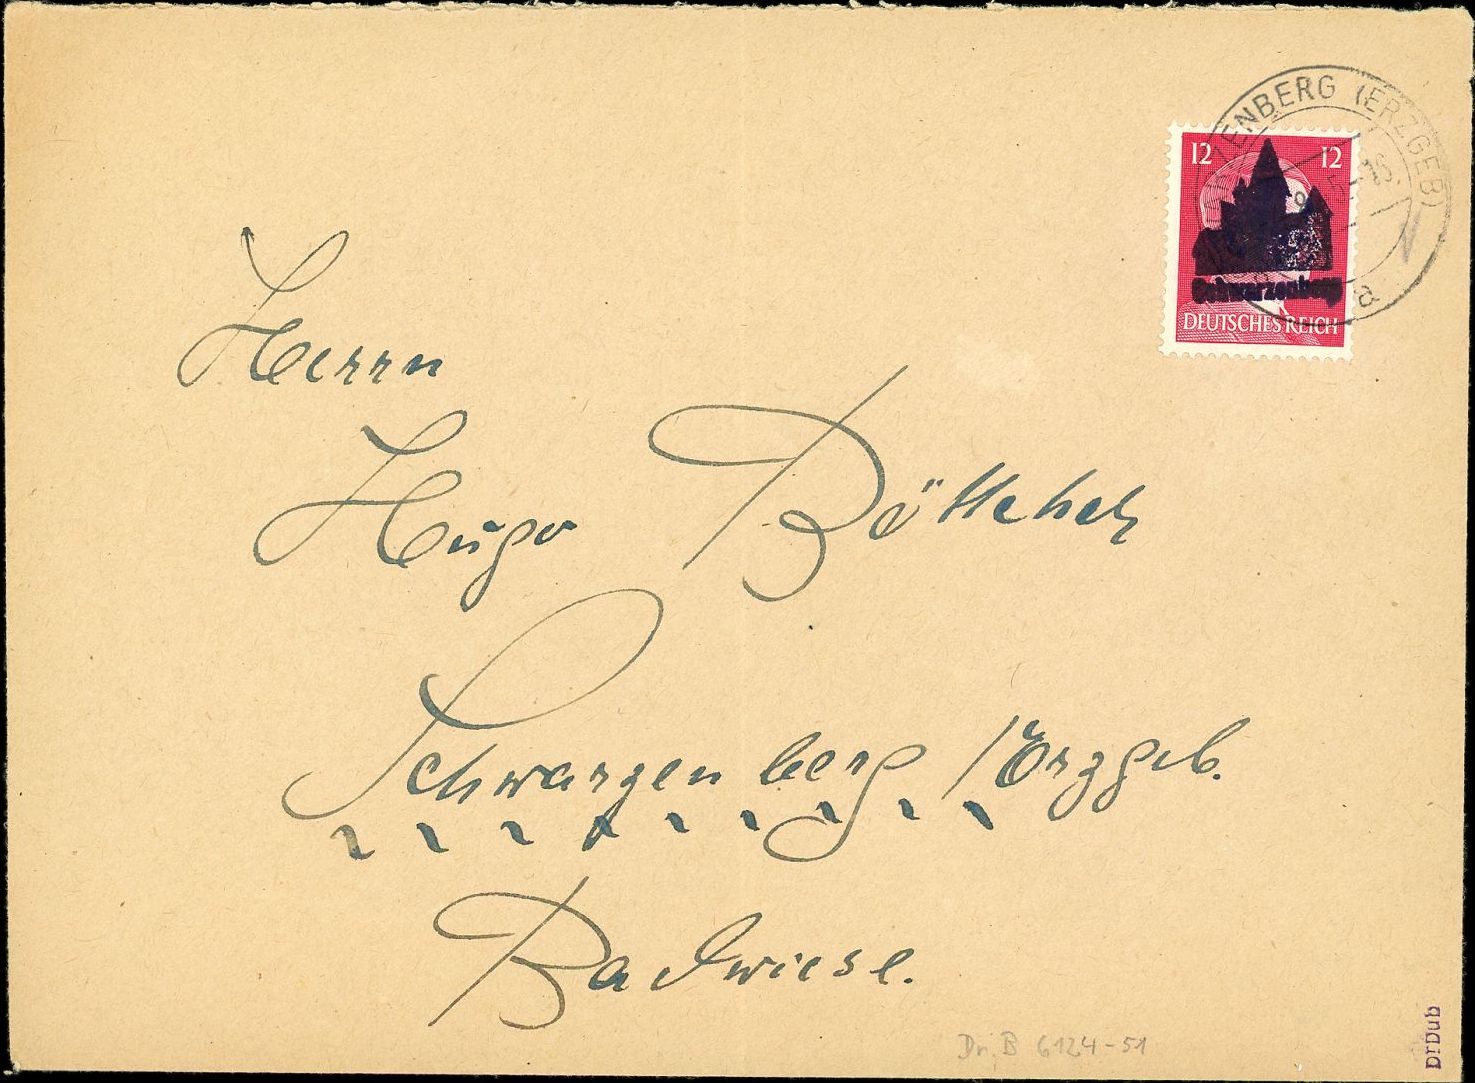 ZENBERG (ERZGEB)
a
12 12
Schwarzenberg
DEUTSCHES REICH
Herrn
Hugo Böttcher
Schwarzenberg /Erzgeb.
Badwiese.
Dr. B 6124-51
DrDub